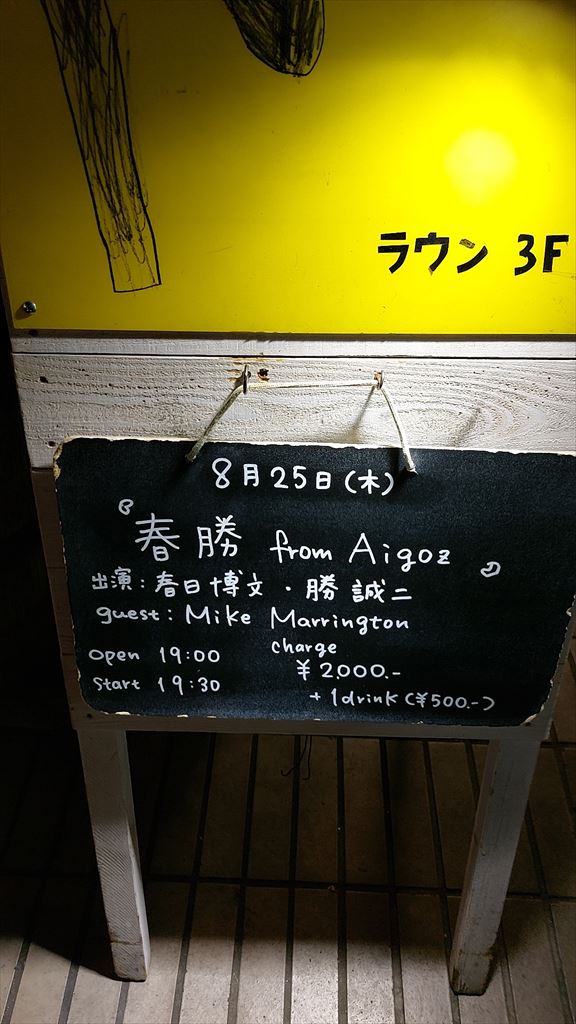 ラウン 3F
8月25日(木)
『春勝 from Aigoz』
出演:春日博文・勝 誠二
guest: Mike Marrington
open 19:00
start 19:30
charge
¥2000.-
+ 1drink (¥500.-)